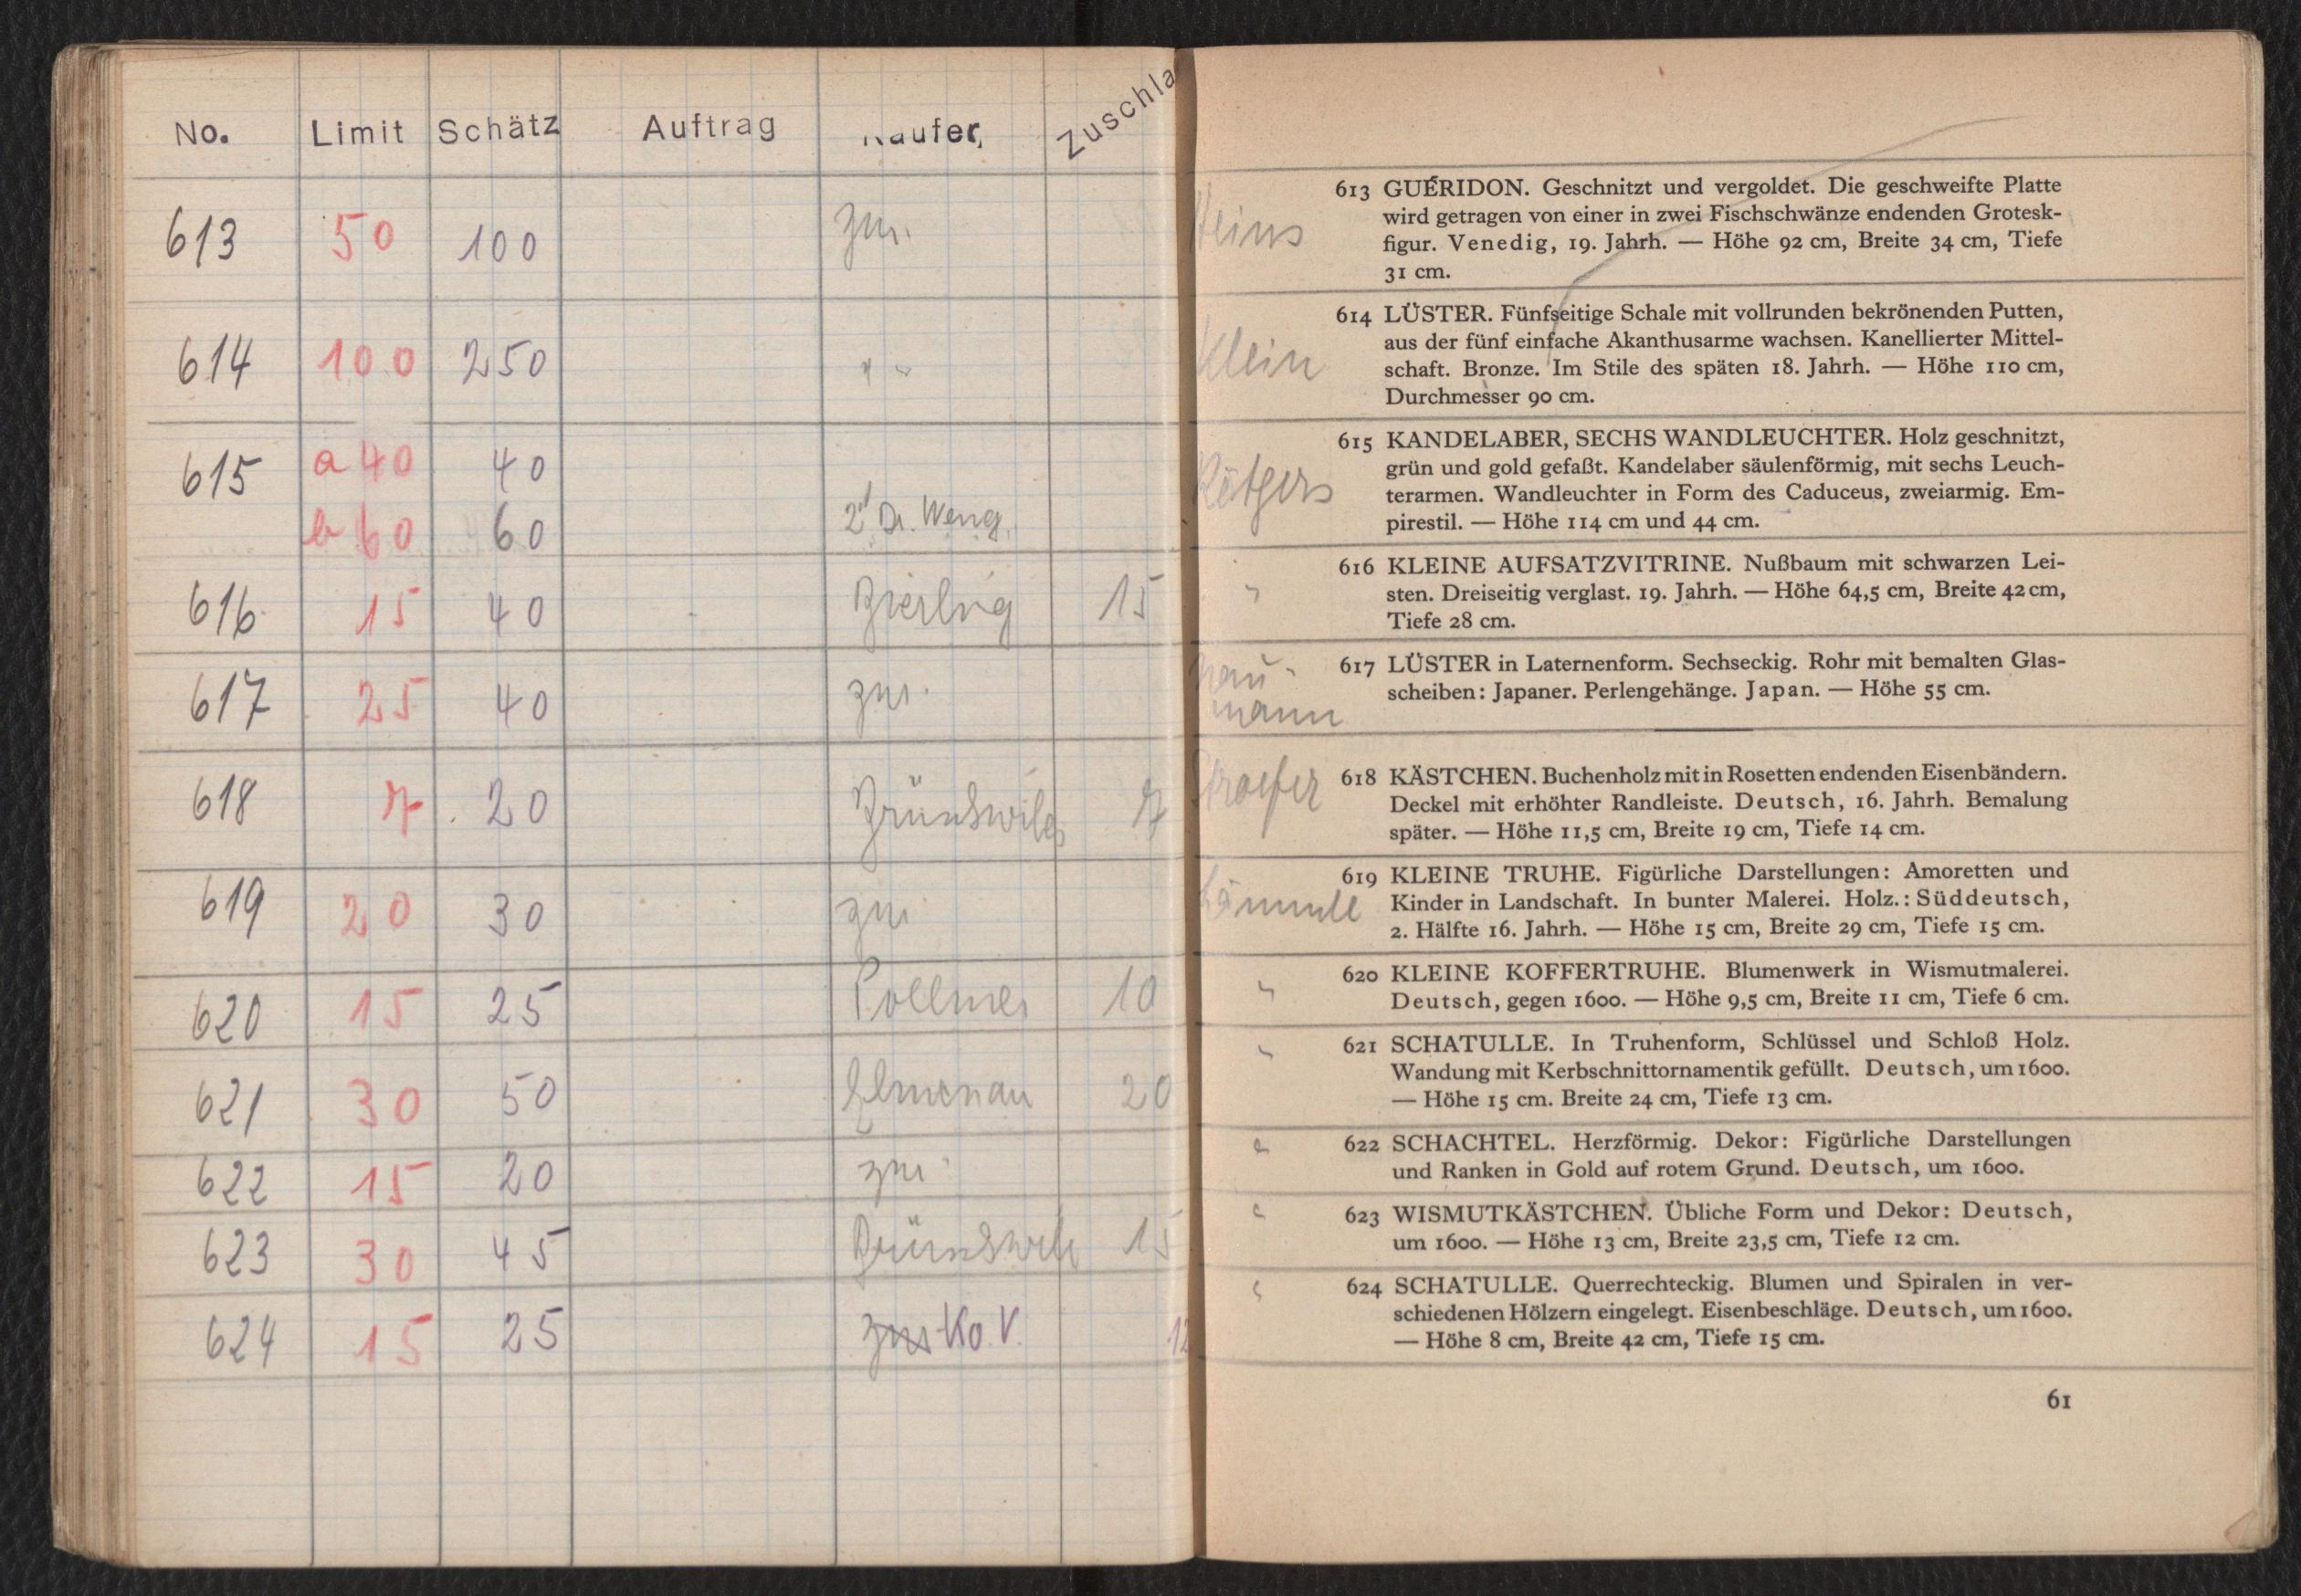 No. Limit Schätz Auftrag Käufer, Zuschla
613 50 100 zur.
614 100 250 " "
615 a 40 40
b 60 60 2 Dr. Weng.
616 15 40 15
617 25 40 zur.
618 7 20 7
619 20 30 zur.
620 15 25 Pollmer 10
621 30 50 Elmenau 20
622 15 20 zur.
623 30 45 15
624 15 25 zur Ko. V. 12
Klein
Rötgers
"
mann
"
"
"
"
"
613 GUÉRIDON. Geschnitzt und vergoldet. Die geschweifte Platte
wird getragen von einer in zwei Fischschwänze endenden Grotesk-
figur. Venedig, 19. Jahrh. — Höhe 92 cm, Breite 34 cm, Tiefe
31 cm.
614 LÜSTER. Fünfseitige Schale mit vollrunden bekrönenden Putten,
aus der fünf einfache Akanthusarme wachsen. Kanellierter Mittel-
schaft. Bronze. Im Stile des späten 18. Jahrh. — Höhe 110 cm,
Durchmesser 90 cm.
615 KANDELABER, SECHS WANDLEUCHTER. Holz geschnitzt,
grün und gold gefaßt. Kandelaber säulenförmig, mit sechs Leuch-
terarmen. Wandleuchter in Form des Caduceus, zweiarmig. Em-
pirestil. — Höhe 114 cm und 44 cm.
616 KLEINE AUFSATZVITRINE. Nußbaum mit schwarzen Lei-
sten. Dreiseitig verglast. 19. Jahrh. — Höhe 64,5 cm, Breite 42 cm,
Tiefe 28 cm.
617 LÜSTER in Laternenform. Sechseckig. Rohr mit bemalten Glas-
scheiben: Japaner. Perlengehänge. Japan. — Höhe 55 cm.
618 KÄSTCHEN. Buchenholz mit in Rosetten endenden Eisenbändern.
Deckel mit erhöhter Randleiste. Deutsch, 16. Jahrh. Bemalung
später. — Höhe 11,5 cm, Breite 19 cm, Tiefe 14 cm.
619 KLEINE TRUHE. Figürliche Darstellungen: Amoretten und
Kinder in Landschaft. In bunter Malerei. Holz.: Süddeutsch,
2. Hälfte 16. Jahrh. — Höhe 15 cm, Breite 29 cm, Tiefe 15 cm.
620 KLEINE KOFFERTRUHE. Blumenwerk in Wismutmalerei.
Deutsch, gegen 1600. — Höhe 9,5 cm, Breite 11 cm, Tiefe 6 cm.
621 SCHATULLE. In Truhenform, Schlüssel und Schloß Holz.
Wandung mit Kerbschnittornamentik gefüllt. Deutsch, um 1600.
— Höhe 15 cm. Breite 24 cm, Tiefe 13 cm.
622 SCHACHTEL. Herzförmig. Dekor: Figürliche Darstellungen
und Ranken in Gold auf rotem Grund. Deutsch, um 1600.
623 WISMUTKÄSTCHEN. Übliche Form und Dekor: Deutsch,
um 1600. — Höhe 13 cm, Breite 23,5 cm, Tiefe 12 cm.
624 SCHATULLE. Querrechteckig. Blumen und Spiralen in ver-
schiedenen Hölzern eingelegt. Eisenbeschläge. Deutsch, um 1600.
— Höhe 8 cm, Breite 42 cm, Tiefe 15 cm.
61